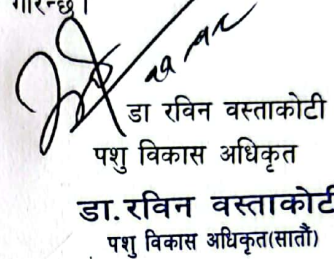 गरिन्छ।
डा रविन वस्ताकोटी
पशु विकास अधिकृत
डा.रविन वस्ताकोटी
पशु विकास अधिकृत(सातौं)